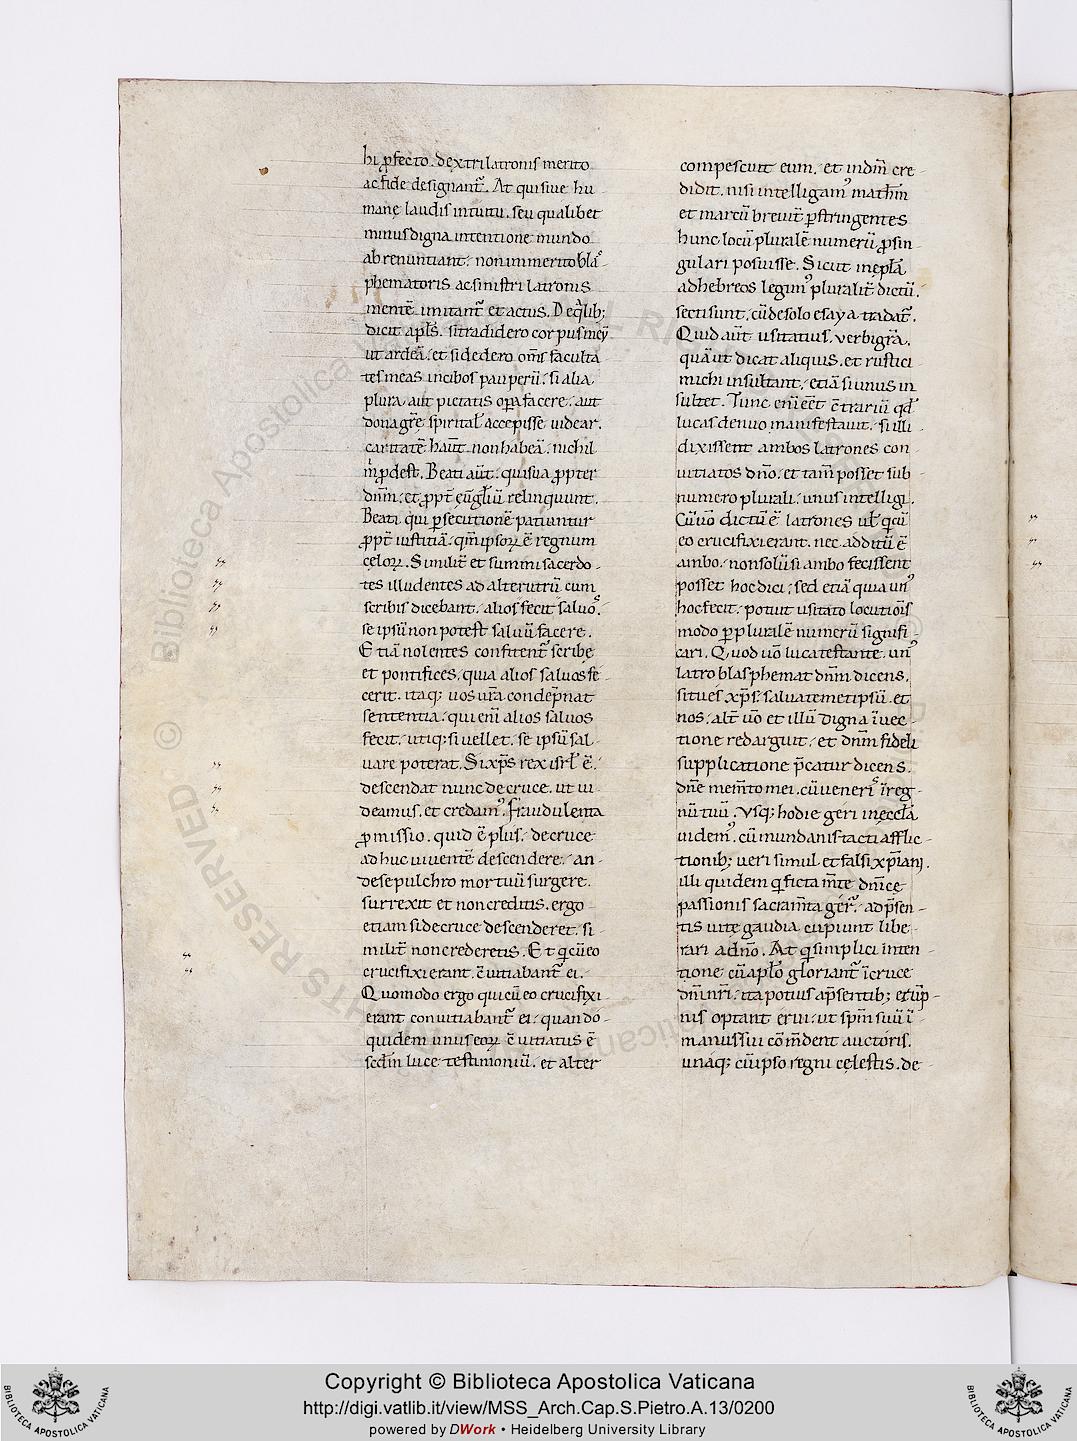 hi ꝓfecto. dextri latronis merito
ac fide designant̃. At qui siue hu
mane laudis intuitu. seu qualibet
minus digna intentione mundo
abrenuntiant. non inmerito blas
phematoris ac sinistri latronis
mentẽ imitant̃ et actus. De qͥlib;
dicit apl̃s. si tradidero corpus meũ
ut ardeã. et si dedero om̃s faculta
tes meas in cibos pauperũ. si alia
plura aut pietatis oꝑa facere. aut
dona grẽ spirital̃ accepisse uidear.
caritatẽ haut̃ non habeã. nichil
m̃ ꝓdest. Beati aũt. qui sua ꝓpter
dñm. et ꝓpt̃ eũgliũ relinquunt.
Beati qui ꝑsecutionẽ patiuntur
ꝓpt̃ iustitiã. qm̃ ipsoꝝ ẽ regnum
celoꝝ. Similit̃ et summi sacerdo
tes illudentes ad alterutrũ cum
scribis dicebant. alios fecit saluos.
se ipsũ non potest saluũ facere.
Etiã nolentes confitent̃ scribę
et pontifices. quia alios saluos fe
cerit. itaq; uos ur̃a condẽpnat
sententia. qui eni alios saluos
fecit. utiq; si uellet. se ipsũ sal
uare poterat. Si xp̃s rex isrl̃ ẽ.
descendat nunc de cruce. ut ui
deamus. et credam᾿. Fraudulenta
ꝓmissio. quid ẽ plus. de cruce
adhuc uiuentẽ descendere. an
de sepulchro mortuũ surgere.
surrexit et non creditis. ergo
etiam si de cruce descenderet. si
milit̃ non crederetis. Et qͥ cũ eo
crucifixi erant. c̃uitiabant̃ ei.
Quomodo ergo qui cũ eo crucifixi
erant conuitiabant̃ ei. quando
quidem unus eoꝝ c̃uitiatus ẽ
scd̃m lucę testimoniũ. et alter
compescuit eum. et in dñm cre
didit. nisi intelligam᾿ matheũm
et marcũ breuit̃ ꝑstringentes
hunc locũ pluralẽ numerũ ꝓ sin
gulari posuisse. Sicut in epl̃a
ad hebreos legim᾿ pluralit̃ dictũ.
secti sunt. cũ de solo esaya tradat̃.
Quid aũt usitatius. uerbi gr̃a.
quã ut dicat aliquis. et rustici
michi insultant. etiã si unus in
sultet. Tunc eni eẽt c̃trariũ qd̃
lucas denuo manifestauit. si illi
dixissent ambos latrones con
uitiatos dño. et tam̃ posset sub
numero plurali. unus intelligi.
Cũ uõ dictũ ẽ latrones ul̃ qͥ cũ
eo crucifixi erant. nec additũ ẽ
ambo. non solũ si ambo fecissent
posset hoc dici. sed etiã quia un᾿
hoc fecit. potuit usitato locutiõis
modo ꝑ pluralẽ numerũ signifi
cari. Quod uõ luca testante. un᾿
latro blasphemat dñm dicens.
si tu es xp̃s. salua temetipsũ et
nos. alt̃ uõ et illũ digna ĩuec
tione redarguit. et dñm fideli
supplicatione p̃catur dicens.
dñe mem̃to mei. cũ ueneris ĩ reg
nũ tuũ. Vsq; hodie geri in ęccl̃a
uidem᾿. cũ mundanis tacti afflic
tionib; ueri simul et falsi xp̃iani.
illi quidem qͥ ficta m̃te dñicę
passionis sacram̃ta ger̃. ad p̃sen
tis uitę gaudia cupiunt libe
rari a dño. At qͥ simplici inten
tione cũ aplo gloriant̃ ĩ cruce
dñi nr̃i. ita potius a p̃sentib; erũp
nis optant erui. ut sp̃m suũ ĩ
manus sui cõm̃dent auctoris.
unaq; cũ ipso regni celestis. de
Copyright © Biblioteca Apostolica Vaticana
http://digi.vatlib.it/view/MSS_Arch.Cap.S.Pietro.A.13/0200
powered by DWork • Heidelberg University Library